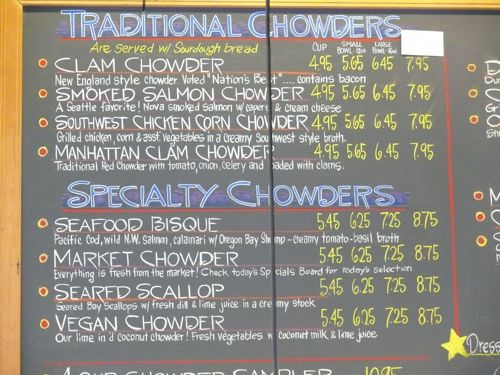 TRADITIONAL CHOWDERS
Are Served w/ Sourdough bread
CUP SMALL BOWL LARGE BOWL
CLAM CHOWDER 4.95 5.65 6.45 7.95
New England style chowder Voted "Nation's Best" .... contains bacon
SMOKED SALMON CHOWDER 4.95 5.65 6.45 7.95
A Seattle favorite! Nova smoked salmon w/ capers & cream cheese
SOUTHWEST CHICKEN CORN CHOWDER 4.95 5.65 6.45 7.95
Grilled chicken, corn & asst. vegetables in a creamy Southwest style broth.
MANHATTAN CLAM CHOWDER 4.95 5.65 6.45 7.95
Traditional Red Chowder with tomato, onion, celery and loaded with clams.
SPECIALTY CHOWDERS
SEAFOOD BISQUE 5.45 6.25 7.25 8.75
Pacific Cod, wild N.W. salmon, calamari w/ Oregon Bay Shrimp - creamy tomato-basil broth
MARKET CHOWDER 5.45 6.25 7.25 8.75
Everything is fresh from the market! Check today's Specials Board for Today's Selection
SEARED SCALLOP 5.45 6.25 7.25 8.75
Seared Bay Scallops w/ fresh dill & lime juice in a creamy stock
VEGAN CHOWDER 5.45 6.25 7.25 8.75
Our lime n coconut chowder! Fresh Vegetables w/ coconut milk & lime juice
Dress
CHOWDER SAMPLER 10.95